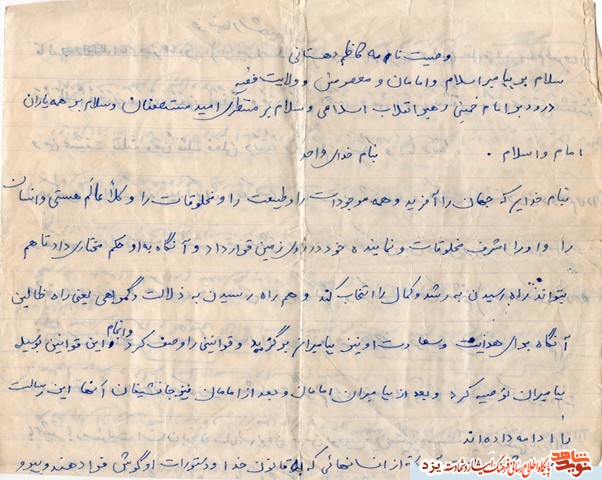 وصیت نامه کاظم دهستانی
سلام بر پیامبر اسلام و امامان و معصومین و ولایت فقیه
درود بر امام خمینی رهبر انقلاب اسلامی و سلام بر منتظری امید مستضعفان و سلام بر همه یاران
امام و اسلام . بنام خدای واحد
بنام خدایی که جهان را آفرید و همه موجودات را و طبیعت را و مخلوقات را و کلاً عالم هستی و انسان
را و او را اشرف مخلوقات و نماینده خود در روی زمین قرار داد و آنگاه به او حکم مختاری داد تا هم
بتواند راه رسیدن به رشد و کمال را انتخاب کند و هم راه رسیدن به ذلالت و گمراهی یعنی راه ظالین
آنگاه برای هدایت و سعادت او نیز پیامبرانی برگزید و قوانینی را وصف کرد و اتمام و این قوانین بوسیله
پیامبران توصیه کرد و بعد از پیامبران امامان و بعد از امامان نیز جانشینان آنها این رسالت
را ادامه داده اند
از انسانهائی که به قانون خدا و دستورات او گوش فرا دهند و پیرو
نوید شاهد پایگاه اطلاع رسانی فرهنگ ایثار و شهادت یزد